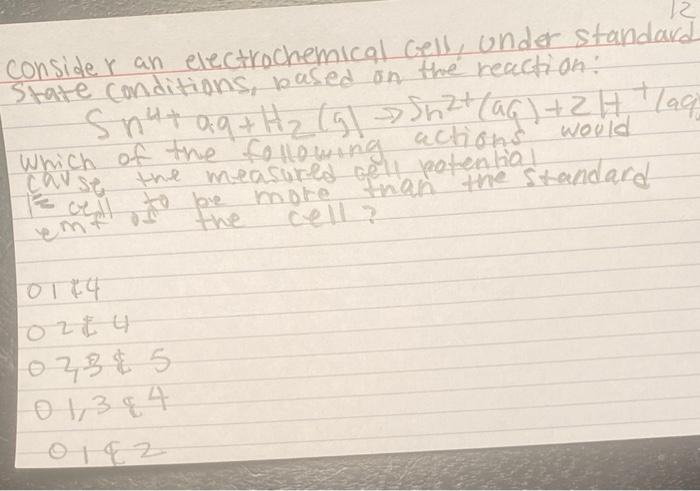 12
consider an electrochemical cell, under standard
State conditions, based on the reaction:
Sn4+ aq + H2(g) → Sn2+(aq) + 2H+(aq
which of the following actions would
cause the measured cell potential
E cell to be more than the standard
emf of the cell?
O 1 & 4
O 2 & 4
O 2,3 & 5
O 1,3 & 4
O 1 & 2